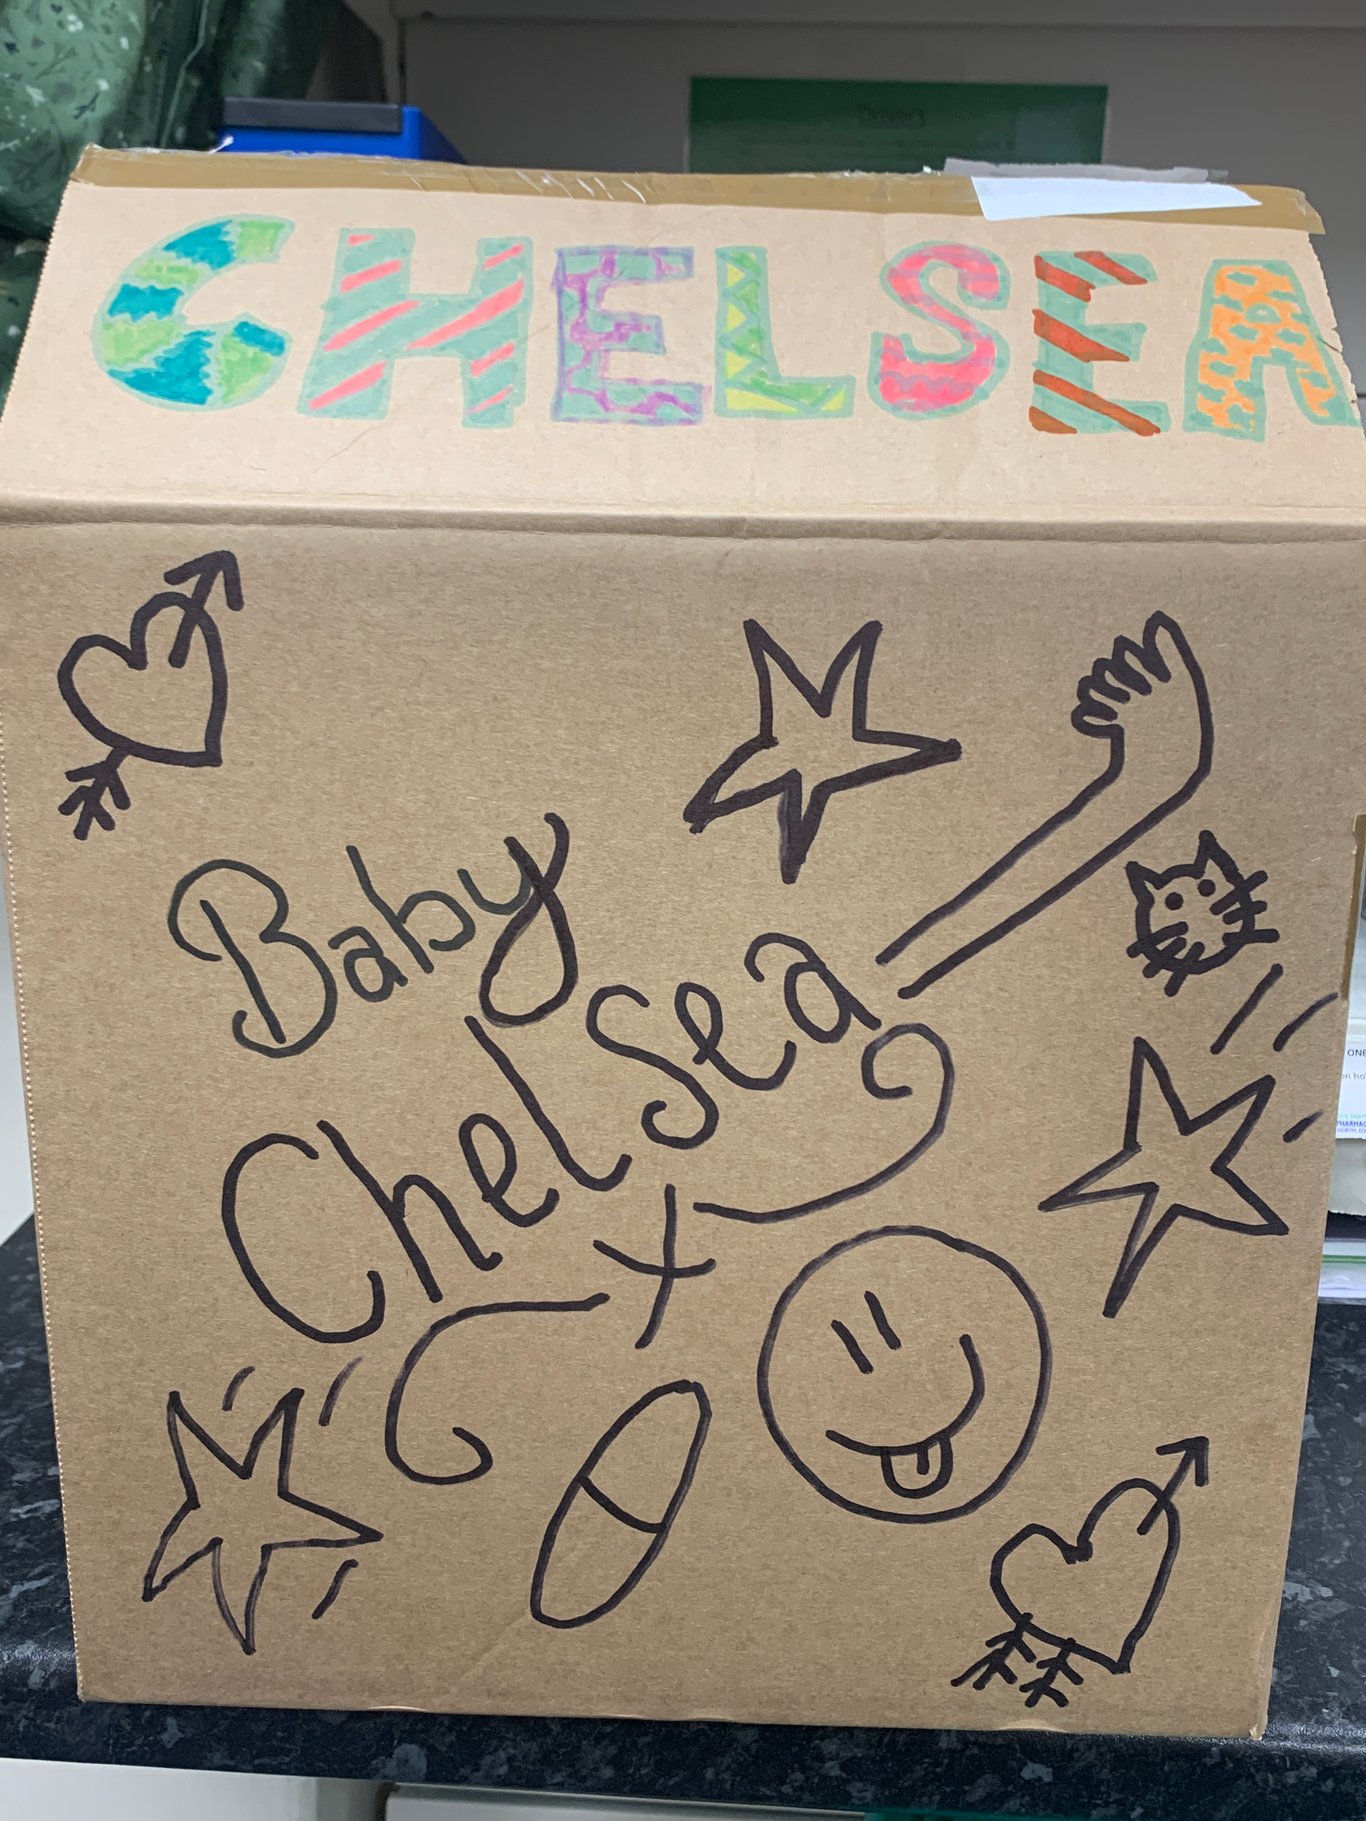 CHELSEA
Baby
Chelsea
x